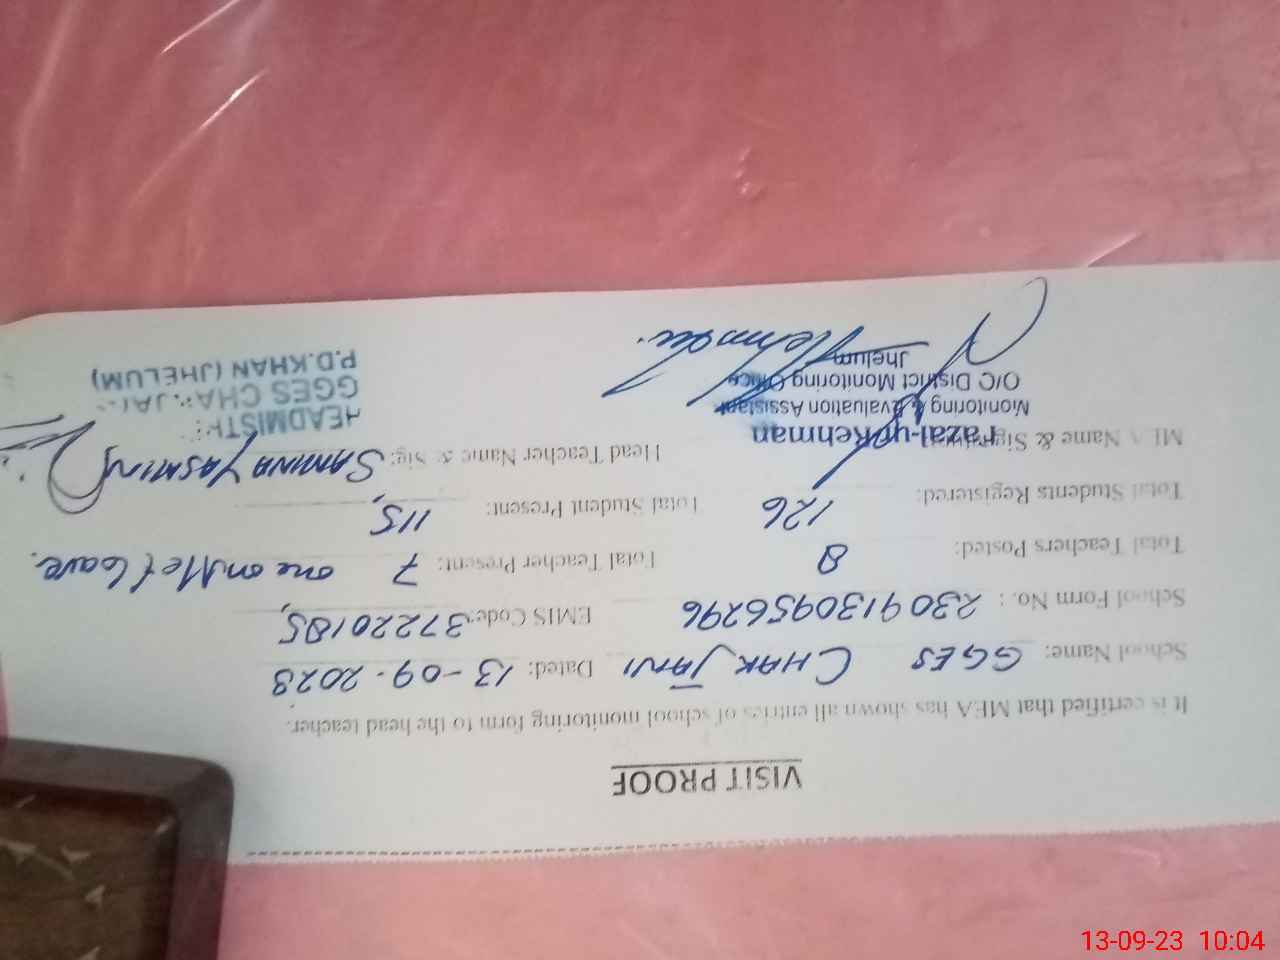 VISIT PROOF
It is certified that MEA has shown all entries of school monitoring form to the head teacher.
School Name: GGES CHAK JANI Dated: 13-09-2023
School Form No.: 2309130956296 EMIS Code: 37220185
Total Teachers Posted: 8 Total Teacher Present: 7 one on Met leave.
Total Students Registered: 126 Total Student Present: 115
MEA Name & Sig: Fazal-ur-Rehman Head Teacher Name & Sig: SAMINA YASMIN
Monitoring & Evaluation Assistant
O/C District Monitoring Office
Jhelum
HEADMISTR
GGES CHAK JANI
P.D.KHAN (JHELUM)
13-09-23 10:04